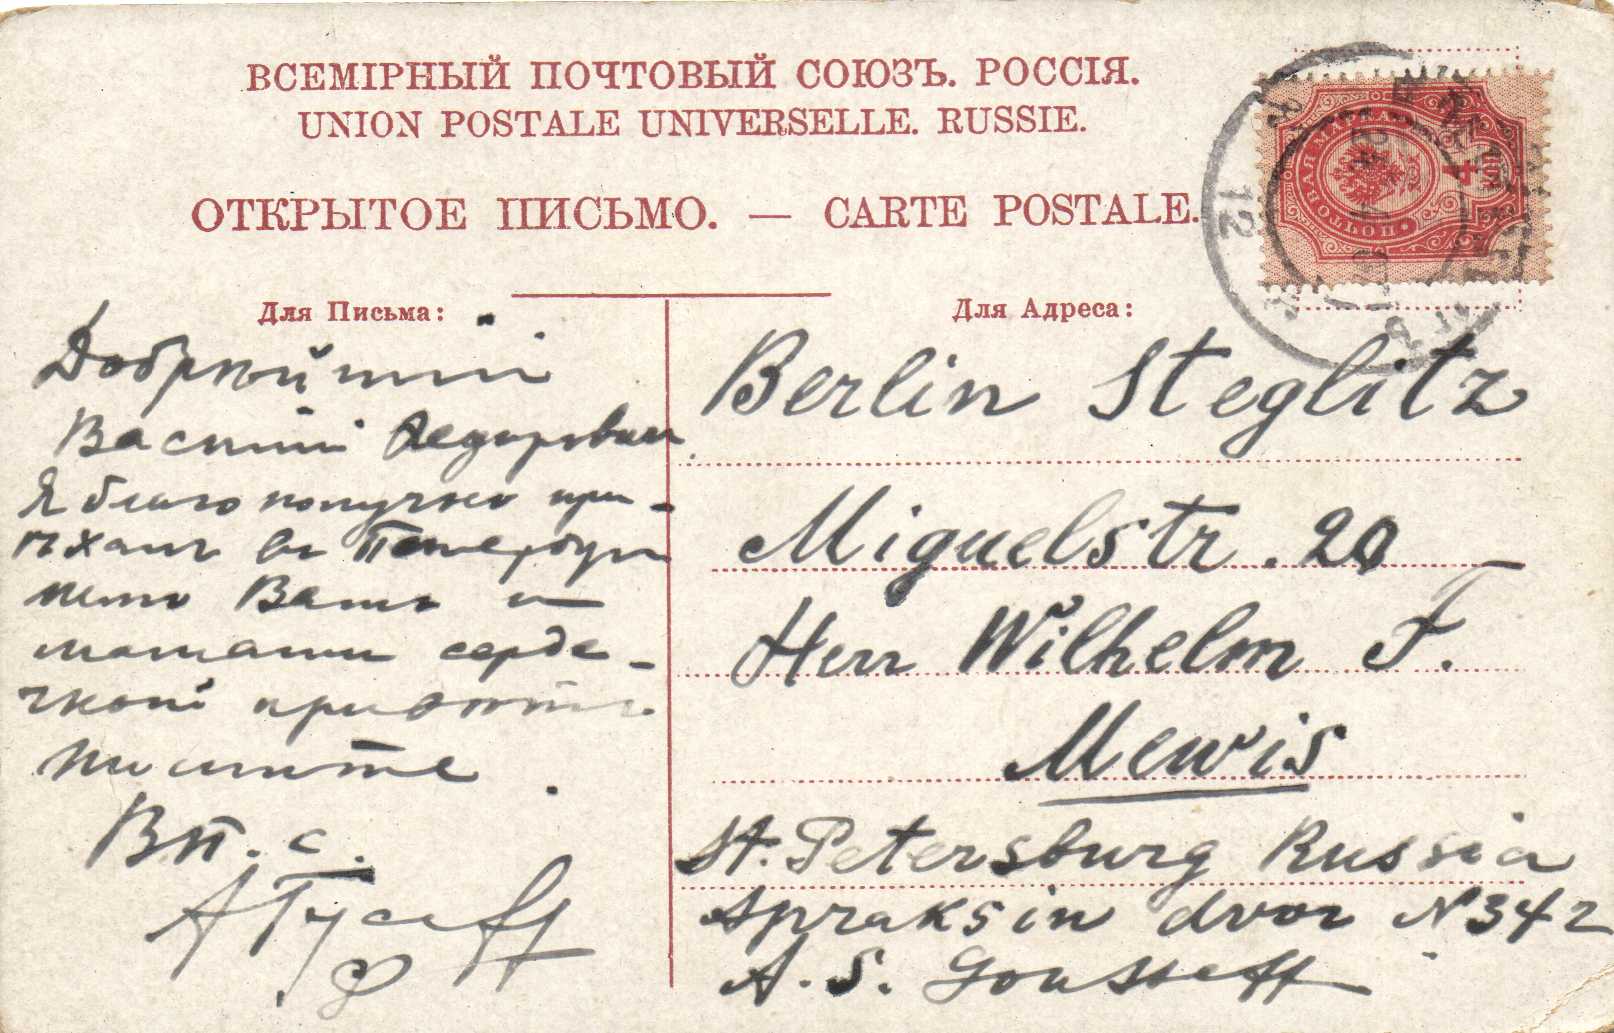 ВСЕМІРНЫЙ ПОЧТОВЫЙ СОЮЗЪ. РОССІЯ.
UNION POSTALE UNIVERSELLE. RUSSIE.
ОТКРЫТОЕ ПИСЬМО. — CARTE POSTALE.
ПОЧТОВАЯ МАРКА
4
12
Для Письма:
Добрѣйшій
Василій Федорович
Я благополучно прі-
ѣхалъ въ Петербург
шлю Вамъ и
мамаши серде-
чной приветъ.
пишите.
В п. с.
А Гусеff
Для Адреса:
Berlin Steglitz
Miquelstr. 20
Herr Wilhelm F.
Mewis
St. Petersburg Russia
Apraksin dvor N 342
A. S. Gousseff